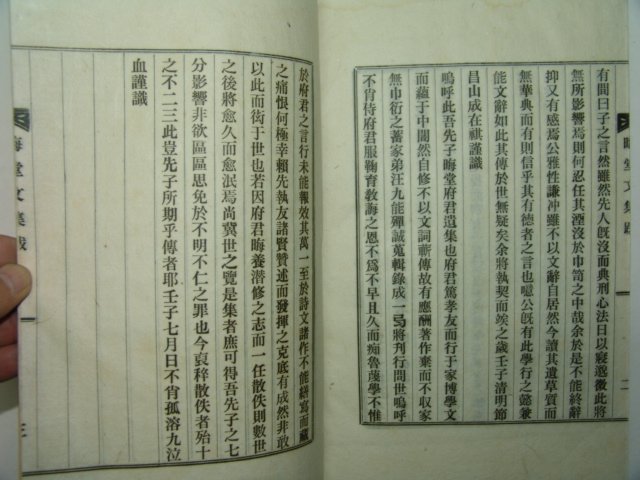 有間曰子之言然雖然先人旣沒而典刑心法日以寢邈微此將
無所影響焉則何忍任其湮沒於巾笥之中哉余於是不能終辭
抑又有感焉公雅性謙冲雖不以文辭自居然今讀其遺草質而
無華典而有則信乎其有德者之言也噫公旣有此學行之懿兼
能文辭如此其傳於世無疑矣余將執契而竢之歲壬子清明節
昌山成在祺謹識
嗚呼此吾先子晦堂府君遺集也府君篤孝友而行于家博學文
而蘊于中闇然自修不以文詞蘄傳故有應酬著作棄而不收家
無巾衍之蓄家弟汪九能殫誠蒐輯錄成一局將刊行問世嗚呼
不肖侍府君服鞠育敎誨之恩不爲不早且久而痴魯蔑學不惟
晦堂文集跋
二
於府君之言行未能報效其萬一至於詩文諸作不能繕寫而藏
之痛恨何極幸賴先執友諸賢贊述而發揮之克底有成然非敢
以此而衒于世也若因府君晦養潜修之志而一任散佚則數世
之後將愈久而愈泯焉尚冀世之覽是集者庶可得吾先子之七
分影響非欲區區思免於不明不仁之罪也今裒稡散佚者殆十
之不二三此豈先子所期乎傳者耶壬子七月日不肖孤溶九泣
血謹識
晦堂文集跋
三